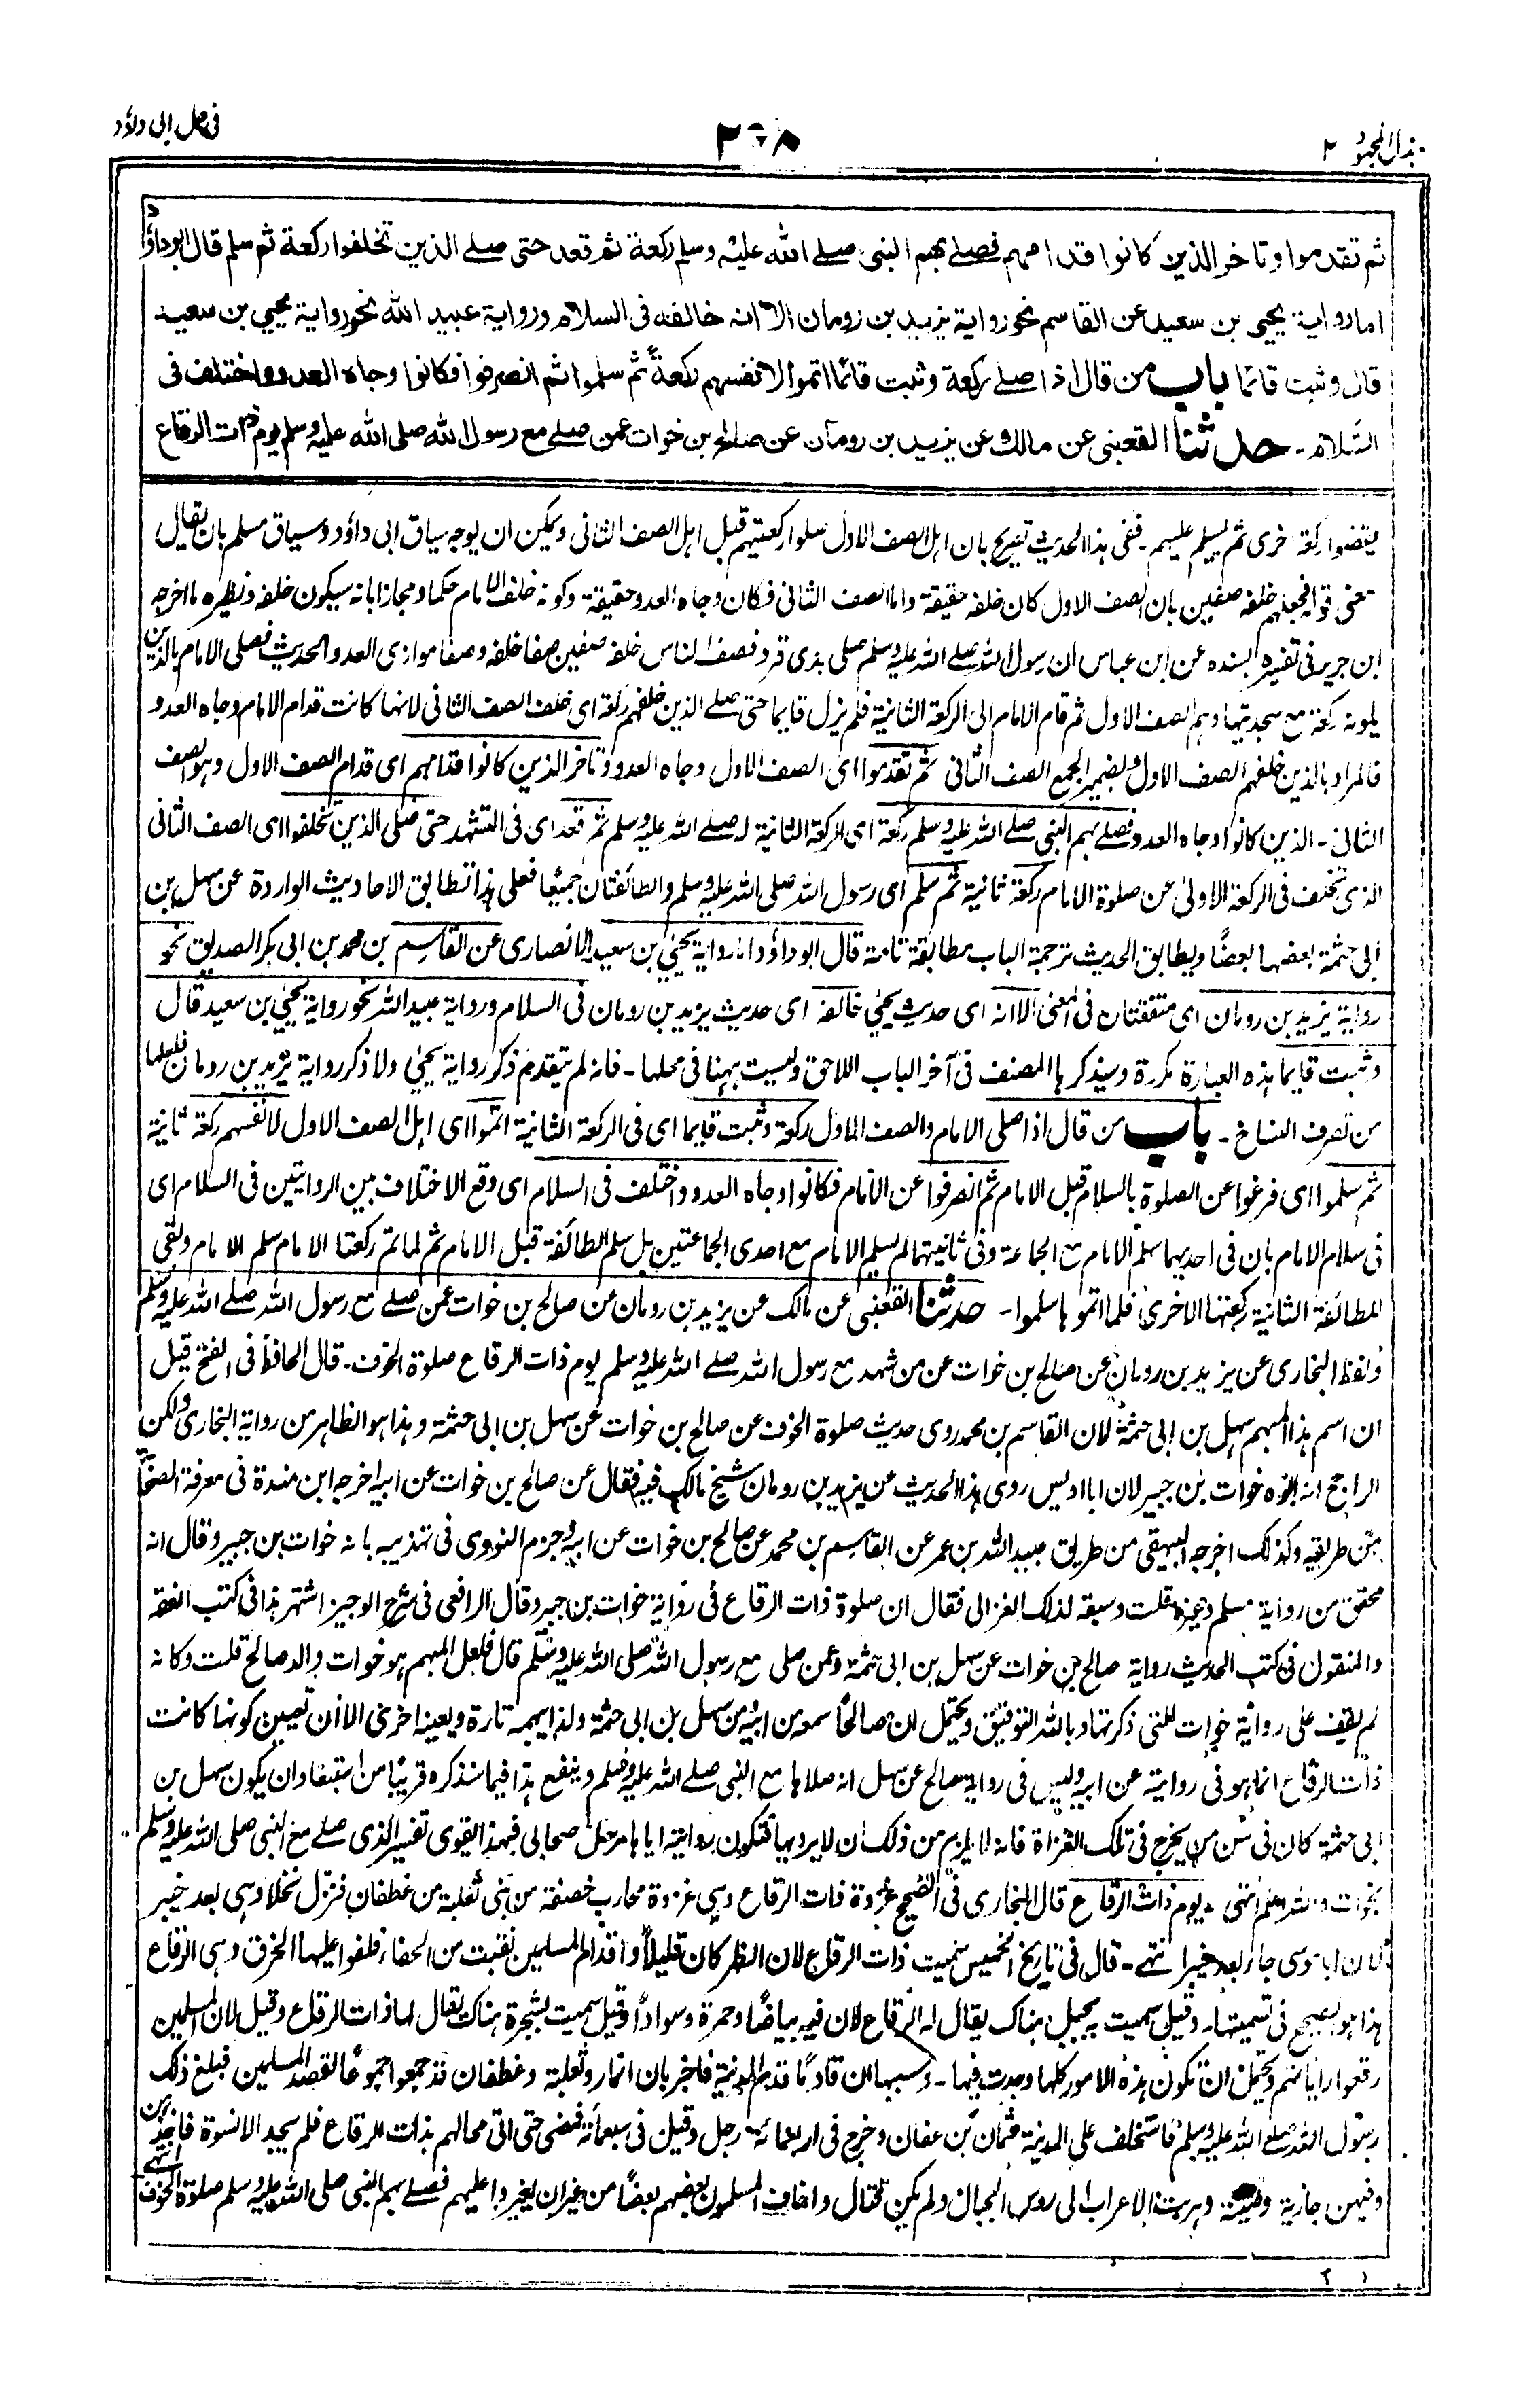 بذل المجهود ٢
فى حل ابى داؤد
ثم تقدموا وتاخر الذين كانوا قدامهم فصلے بهم النبى صلے الله عليه وسلم ركعة ثم قعد حتى صلے الذين تخلفوا ركعة ثم سلم قال ابوداؤد
اما رواية يحيى بن سعيد عن القاسم نحو رواية يزيد بن رومان الا انه خالفه فى السلام ورواية عبيد الله نحو رواية يحيى بن سعيد
قال وثبت قائما باب من قال اذا صلے ركعة وثبت قائمًا اتموا لانفسهم ركعةً ثم سلموا ثم انصرفوا فكانوا وجاه العدو واختلف فى
السّلام۔ حدثنا القعنبى عن مالك عن يزيد بن رومان عن صالح بن خوات عمن صلے مع رسول الله صلى الله عليه وسلم يوم ذات الرقاع
فيقضوا ركعة اخرى ثم ليسلم عليهم۔ ففى هذا الحديث تصريح بان اہل الصف الاول صلوا ركعتيهم قبل اہل الصف الثانى ويمكن ان يوجه سياق ابى داؤد وسياق مسلم بان يقال
معنى قوله فجعلهم خلفه صفين بان الصف الاول كان خلفه حقيقة واما الصف الثانى فكان وجاه العدو حقيقة وكونه خلف الامام حكما ومجازا بانه سيكون خلفه ونظيره ما اخرجه
ابن جرير فى تفسيره بسنده عن ابن عباس ان رسول الله صلے الله عليه وسلم صلى بذى قرد فصف الناس خلفه صفين صفا خلفه وصفا موازى العدو الحديث فصلى الامام بالذين
يلونه ركعة مع سجدتيها وہم الصف الاول ثم قام الامام الى الركعة الثانية فلم يزل قايما حتى صلے الذين خلفهم ركعة اى خلف الصف الثانى لانها كانت قدام الامام وجاه العدو
فالمراد بالذين خلفهم الصف الاول وبضمير الجمع الصف الثانى ثم تقدموا اى الصف الاول وجاه العدو وتاخر الذين كانوا قدامهم اى قدام الصف الاول وہو الصف
الثانى۔ الذين كانوا وجاه العدو فصلے بهم النبى صلے الله عليه وسلم ركعة اى الركعة الثانية له صلے الله عليه وسلم ثم قعد اى فى التشهد حتى صلى الذين تخلفوا اى الصف الثانى
الذى تخلف فى الركعة الاولى عن صلوة الامام ركعة ثانية ثم سلم اى رسول الله صلى الله عليه وسلم والطائفتان جميعًا فعلى ہذا تطابق الاحاديث الواردة عن سہل بن
ابى حثمة بعضہا بعضًا ويطابق الحديث ترجمة الباب مطابقة تامة قال ابو داؤد اما رواية يحيى بن سعيد الانصارى عن القاسم بن محمد بن ابى بكر الصديق نحو
رواية يزيد بن رومان اى متفقتان فى المعنى الا انه اى حديث يحيى خالفه اى حديث يزيد بن رومان فى السلام ورواية عبيد الله نحو رواية يحيى بن سعيد قال
وثبت قايما ہذه العبارة مكررة وسيذكرہا المصنف فى آخر الباب اللاحق وليست ہہنا فى محلہا۔ فانه لم يتقدم ذكر رواية يحيى ولا ذكر رواية يزيد بن رومان فلعلہا
من تصرف النساخ۔ باب من قال اذا صلى الامام والصف الاول ركعة وثبت قايما اى فى الركعة الثانية اتموا اى اہل الصف الاول لانفسہم ركعة ثانية
ثم سلموا اى فرغوا عن الصلوة بالسلام قبل الامام ثم انصرفوا عن الامام فكانوا وجاه العدو واختلف فى السلام اى وقع الاختلاف بين الروايتين فى السلام اى
فى سلام الامام بان فى احديہما سلم الامام مع الجماعة وفى ثانيتہما لم يسلم الامام مع احدى الجماعتين بل سلم الطائفة قبل الامام ثم لما تم ركعتا الامام سلم الامام وبقى
للطائفة الثانية ركعتہا الاخرى فلما اتموہا سلموا۔ حدثنا القعنبى عن مالك عن يزيد بن رومان عن صالح بن خوات عمن صلے مع رسول الله صلے الله عليه وسلم
ولفظ البخارى عن يزيد بن رومان عن صالح بن خوات عن من شہد مع رسول الله صلے الله عليه وسلم يوم ذات الرقاع صلوة الخوف۔ قال الحافظ فى الفتح قيل
ان اسم ہذا المبہم سہل بن ابى حثمة لان القاسم بن محمد روى حديث صلوة الخوف عن صالح بن خوات عن سہل بن ابى حثمة وہذا ہو الظاہر من رواية البخارى ولكن
الراجح انه ابوه خوات بن جبير لان ابا اويس روى ہذا الحديث عن يزيد بن رومان شيخ مالك فيه فقال عن صالح بن خوات عن ابيه اخرجه ابن مندة فى معرفة الصحابة
من طريقه وكذلك اخرجه البيہقى من طريق عبيد الله بن عمر عن القاسم بن محمد عن صالح بن خوات عن ابيه وجزم النووى فى تہذيبه بانه خوات بن جبير وقال انه
محقق من رواية مسلم وغيره قلت وسبقه لذلك الغزالى فقال ان صلوة ذات الرقاع فى رواية خوات بن جبير وقال الرافعى فى شرح الوجيز اشتہر ہذا فى كتب الفقه
والمنقول فى كتب الحديث رواية صالح بن خوات عن سہل بن ابى حثمة وعمن صلى مع رسول الله صلى الله عليه وسلم قال فلعل المبہم ہو خوات والد صالح قلت وكانه
لم يقف على رواية خوات التى ذكرتہا وبالله التوفيق ويحتمل ان صالحًا سمعه من ابيه ومن سہل بن ابى حثمة ولذا يبہمه تارة ويعينه اخرى الا ان تعيين كونہا كانت
ذات الرقاع انما ہو فى روايته عن ابيه وليس فى رواية صالح عن سہل انه صلاہا مع النبى صلے الله عليه وسلم وينفع ہذا فيما سنذكره قريبًا من استبعاد ان يكون سہل بن
ابى حثمة كان فى سن من يخرج فى تلك الغزاة فانه لا يلزم من ذلك ان لا يرويہا فتكون روايته اياہا مرسل صحابى فبہذا يقوى تفسير الذى صلے مع النبى صلى الله عليه وسلم
بخوات والله اعلم انتہى۔ يوم ذات الرقاع قال البخارى فى الصحيح غزوة ذات الرقاع وہى غزوة محارب خصفة من بنى ثعلبة من غطفان فنزل نخلا وہى بعد خيبر
لان ابا موسى جاء بعد خيبر انتہے۔ قال فى تاريخ الخميس سميت ذات الرقاع لان الظہر كان قليلًا واقدام المسلمين نقبت من الحفاء فلفوا عليہا الخرق وہى الرقاع
ہذا ہو الصحيح فى تسميتہا۔ وقيل سميت به بجبل ہناك يقال له الرقاع لان فيه بياضًا وحمرة وسوادًا وقيل سميت بشجرة ہناك يقال لہا ذات الرقاع وقيل لان المسلمين
رقعوا راياتہم ويحتمل ان تكون ہذه الامور كلہا وجدت فيہا۔ وسببہا ان قادمًا قدم المدينة فاخبر بان انمار وثعلبة وغطفان قد جمعوا جموعًا لقصد المسلمين فبلغ ذلك
رسول الله صلے الله عليه وسلم فاستخلف على المدينة عثمان بن عفان وخرج فى اربعمائة رجل وقيل فى سبعمائة فمضى حتى اتى محالہم بذات الرقاع فلم يجد الا نسوة فاخذہن
وفيہن جارية وضيئة وہربت الاعراب الى روس الجبال ولم يكن قتال واخاف المسلمون بعضہم بعضًا من غير ان يغيروا عليہم فصلے بہم النبى صلى الله عليه وسلم صلوة الخوف انتہے